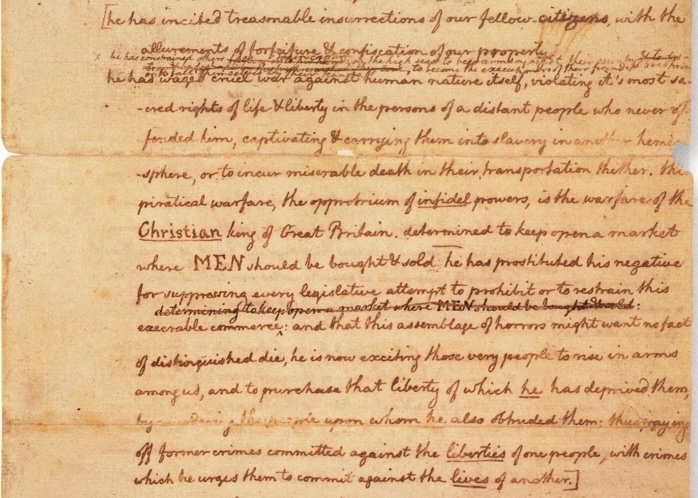 [he has incited treasonable insurrections of our fellow-citizens, with the
allurements of forfeiture & confiscation of our property.
he has constrained others taken captives on the high seas to bear arms against their country & to
he has waged cruel war against human nature itself, violating it's most sa-
-cred rights of life & liberty in the persons of a distant people who never of-
fended him, captivating & carrying them into slavery in another hemi-
-sphere, or to incur miserable death in their transportation thither. this
piratical warfare, the opprobrium of infidel powers, is the warfare of the
Christian king of Great Britain. determined to keep open a market
where MEN should be bought & sold he has prostituted his negative
for suppressing every legislative attempt to prohibit or to restrain this
determining to keep open a market where MEN should be bought & sold:
execrable commerce: and that this assemblage of horrors might want no fact
of distinguished die, he is now exciting those very people to rise in arms
among us, and to purchase that liberty of which he has deprived them,
by murdering the people upon whom he also obtruded them: thus paying
off former crimes committed against the liberties of one people, with crimes
which he urges them to commit against the lives of another.]